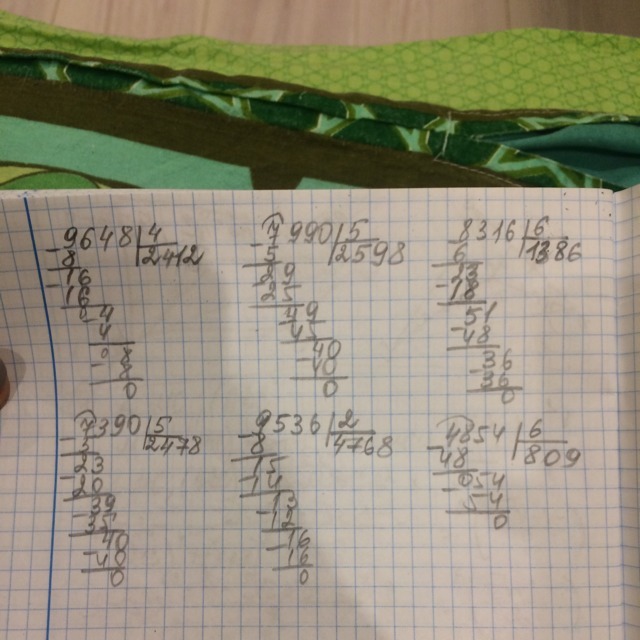 9648 | 4
- 8 | 2412
16
- 16
4
- 4
8
- 8
0
7990 | 5
- 5 | 1598
29
- 25
49
- 45
40
- 40
0
8316 | 6
- 6 | 1386
23
- 18
51
- 48
36
- 36
0
7390 | 5
- 5 | 1478
23
- 20
39
- 35
40
- 40
0
9536 | 2
- 8 | 4768
15
- 14
13
- 12
16
- 16
0
4854 | 6
- 48 | 809
54
- 54
0